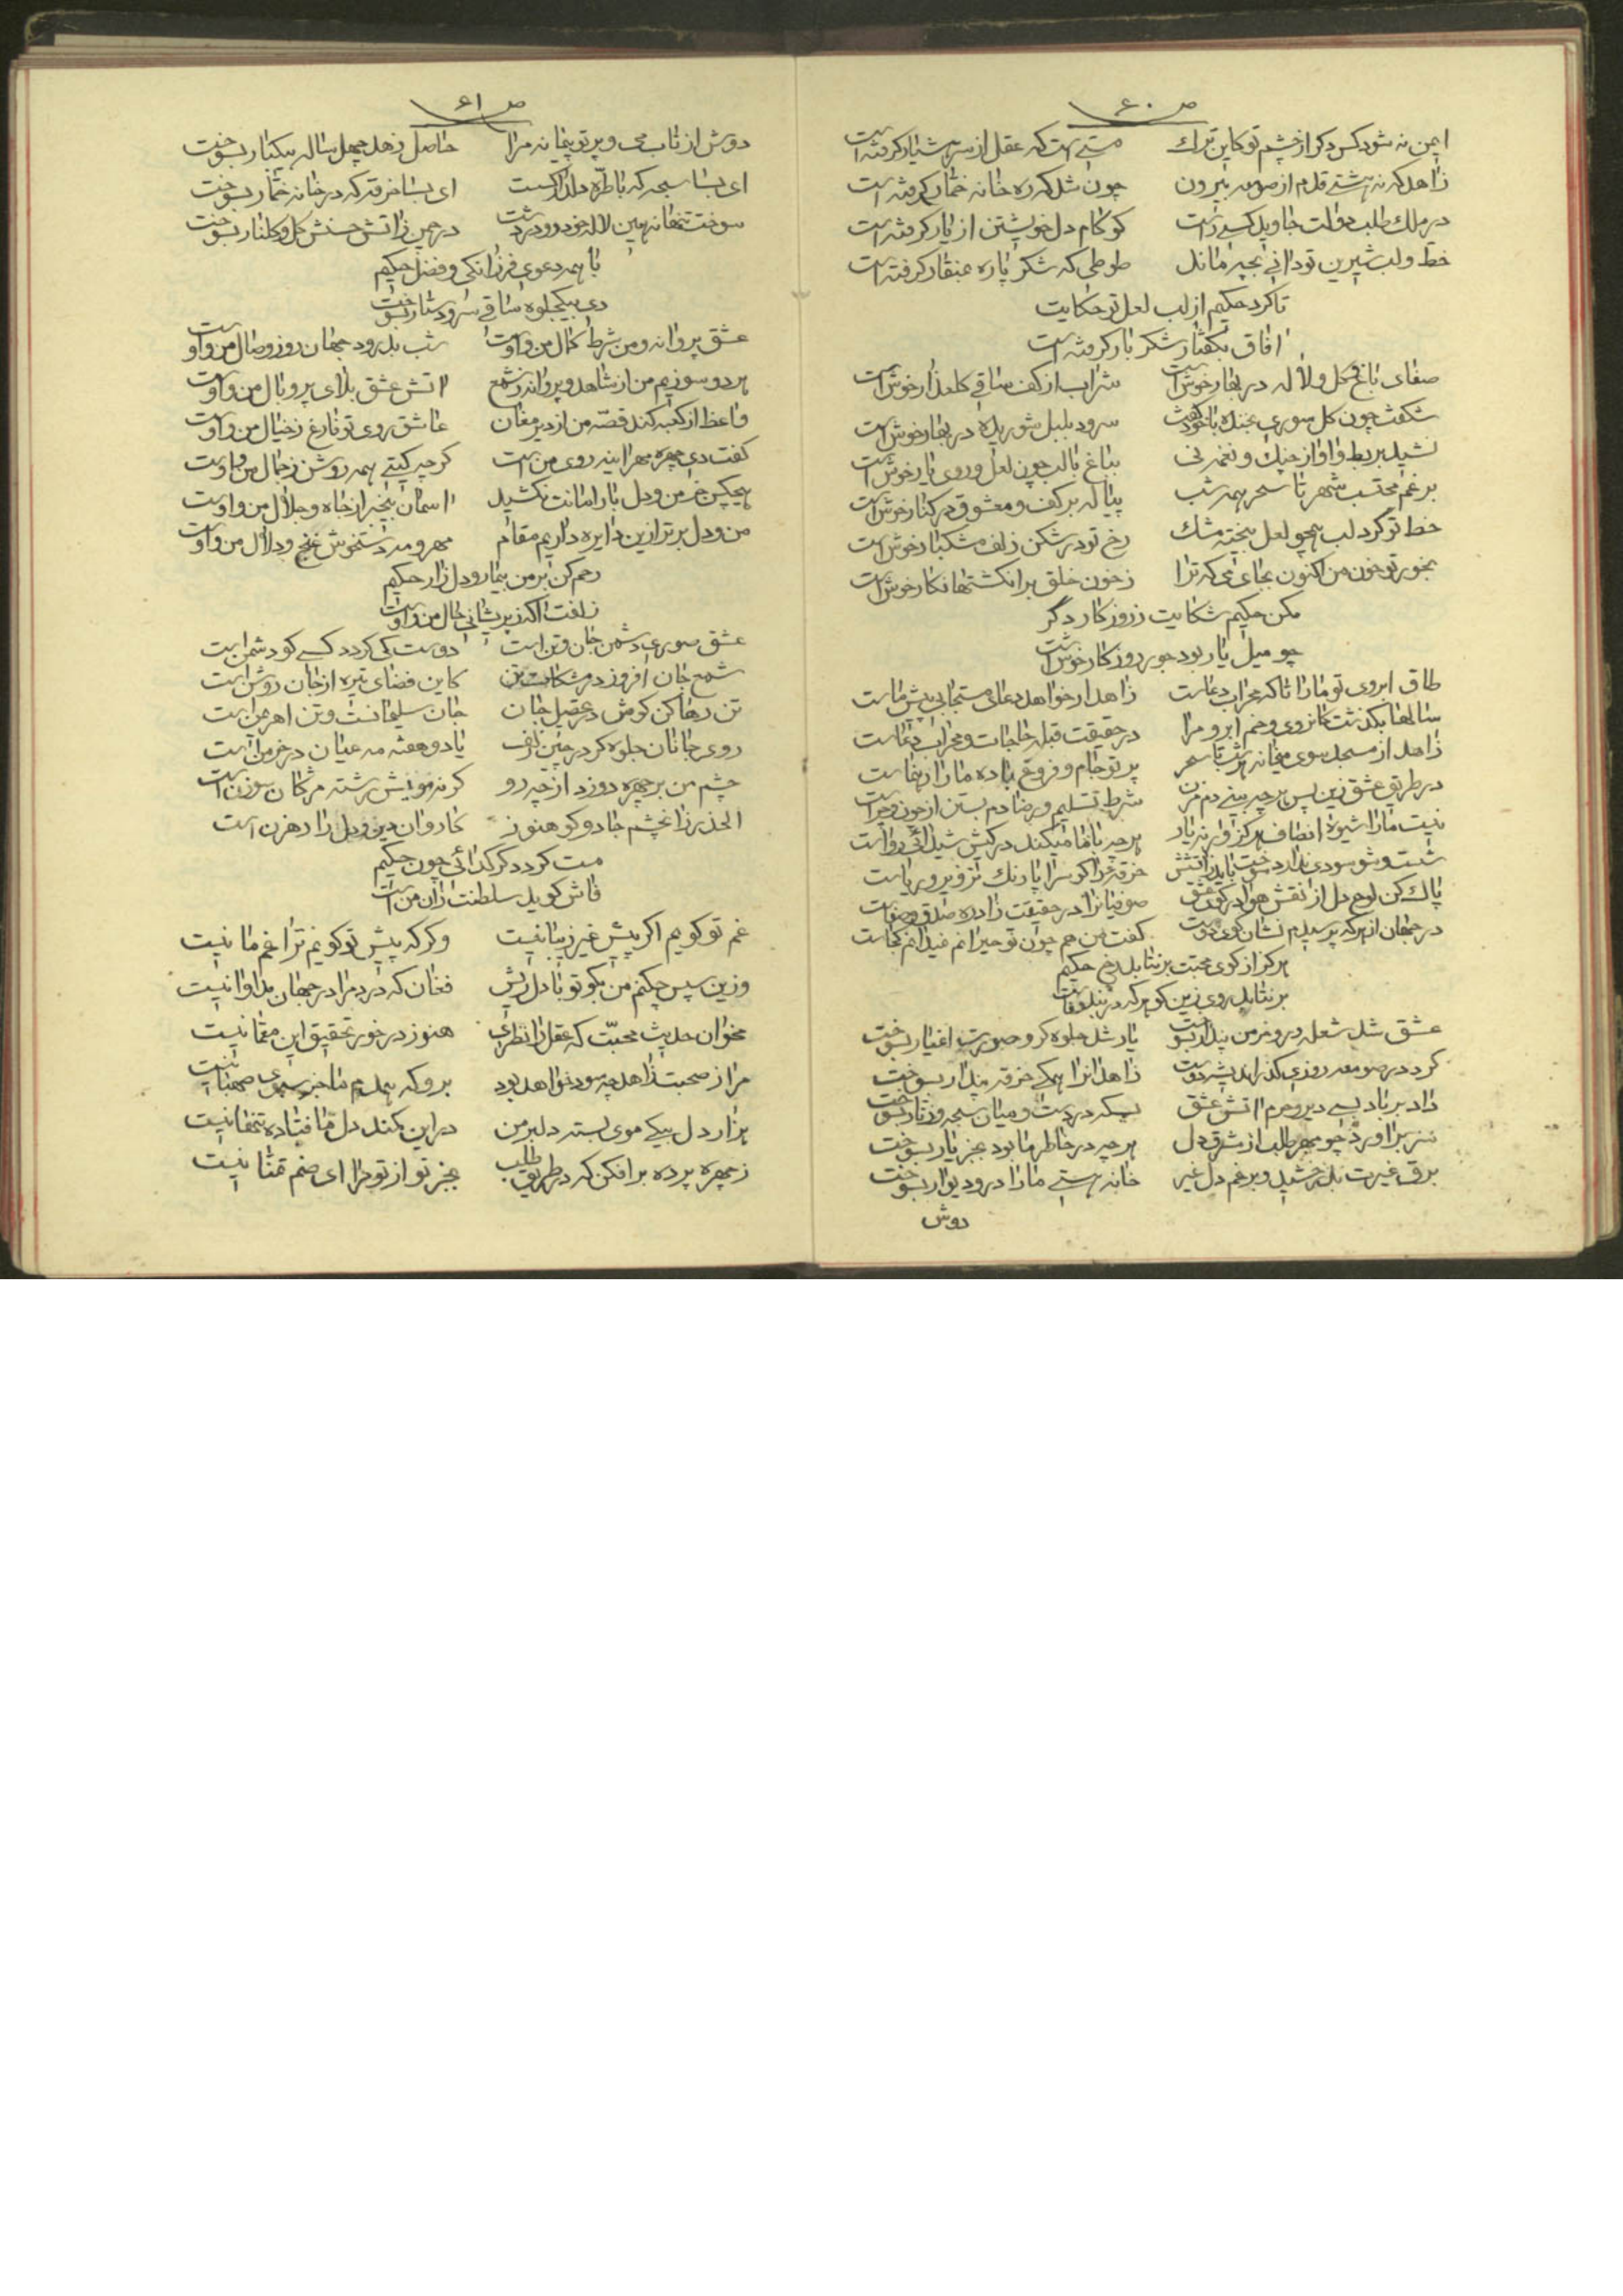 ص ۶۰
ایمن نه شود کس دگر از چشم تو کاین ترک مستی است که عقل از سر هشیار گرفته است
زاهد که نه هشتی قدم از صومعه بیرون چون شد که ره خانه خمار گرفته است
در ملک طلب دولت جاوید کسی راست کو کام دل خویشتن از یار گرفته است
خط و لب شیرین تو دانی بچه ماند طوطی که شکر پاره بمنقار گرفته است
تا کرد حکیم از لب لعل تو حکایت
افاق بگفتار شکر بار گرفته است
صفای باغ و گل و لاله در بهار خوش است شراب از کف ساقی گلعذار خوش است
شکفت چون گل سوری بخنده با خود گفت سرود بلبل شوریده در بهار خوش است
نشید بربط و اواز چنک و نغمه نی بباغ با لب چون لعل و روی یار خوش است
برغم محتسب شهر تا سحر همه شب پیاله بر کف و معشوق در کنار خوش است
خط تو گرد لب همچو لعل بیخته مشک رخ تو در شکن زلف مشکبار خوش است
بخور تو خون من اکنون بجای می که ترا ز خون خلق بر انگشتها نگار خوش است
مکن حکیم شکایت ز روزگار دگر
چو میل یار بود جور روزگار خوش است
طاق ابروی تو ما را تا که محراب دعاست زاهد ار خواهد دعای مستجابی پیش ماست
سالها بگذشت کانروی و خم ابرو مرا در حقیقت قبله حاجات و محراب دعاست
زاهد از مسجد سوی میخانه هر شب تا سحر پرتو جام و فروغ باده ما را رهنماست
در طریق عشق زین پس هر چه بینی دم مزن شرط تسلیم و رضا دم بستن از چون و چراست
نیست ما را شیوه انصاف هرگز ور نه یار هر چه با ما میکند در کیش شیدائی رواست
شست و شو سودی ندارد سوخت باید زاتشش خرقه مرا کو سراپا رنک تزویر و ریاست
پاک کن لوح دل از نقش هوا در کوی عشق صوفیانرا در حقیقت زاده صدق و صفاست
در جهان از هر که پرسیدم نشان کوی دوست گفت من هم چون تو حیرانم نمیدانم کجاست
هرگز از کوی محبت بر نتابد رخ حکیم
بر نتابد روی زین کو هر که در بند وفاست
عشق شد شعله در و خرمن پندار بسوخت یار شد جلوه گر و صورت اغیار بسوخت
کرد در صومعه روزی گذر اندیشه دوست زاهدانرا همگی خرقه پندار بسوخت
داد بر باد بسی دیر و حرم اتش عشق بسکه در دست و میان سبحه و زنار بسوخت
سر براورد چو مهر طلب از مشرق دل هر چه در خاطر ما بود بجز یار بسوخت
برق غیرت بدرخشید و برغم دل غیر خانه هستی ما را در و دیوار بسوخت
دوش
ص ۶۱
دوش از تاب می و پرتو پیمانه مرا حاصل زهد چهل ساله بیکبار بسوخت
ای بسا سبحه که با طره دلدار گسست ای بسا خرقه که در خانه خمار بسوخت
سوخت تنها نه همین لاله خودرو در دشت در چمن زاتش حسنش گل و گلنار بسوخت
با همه دعوی فرزانگی و فضل حکیم
دی بیکجلوه ساقی سر و دستار بسوخت
عشق پروانه و من شرط کمال من و اوست شب بدرود جهان روز وصال من و اوست
هر دو سوزیم من از شاهد و پروانه ز شمع اتش عشق بلای پر و بال من و اوست
واعظ از کعبه کند قصه من از دیر مغان عاشق روی تو فارغ ز خیال من و اوست
گفت دی چهره مهر اینه روی من است گر چه گیتی همه روشن ز جمال من و اوست
هیچکس جز من و دل بار امانت نکشید اسمان بیخبر از جاه و جلال من و اوست
من و دل برتر ازین دایره داریم مقام مهر و مه دستخوش غنج و دلال من و اوست
رحم کن بر من بیمار و دل زار حکیم
زلفت اگه ز پریشانی حال من و اوست
عشق صوری دشمن جان و تن است دوست کی گردد کسی کو دشمن است
شمع جان افروز در مشکات تن کاین فضای تیره از جان روشن است
تن رها کن کوش در عقبی جان جان سلیمانست و تن اهرمن است
روی جانان جلوه گر در چین زلف یا دو هفته مه عیان در خرمن است
چشم من بر چهره دوزد از چه رو گر نه مویش رشته مژگان سوزن است
الحذر زان چشم جادو کو هنوز کاروان دین و دل را رهزن است
مست گردد گر گدائی چون حکیم
فاش گوید سلطنت زان من است
غم تو گویم اگر پیش غیر زیبا نیست وگر که پیش تو گویم ترا غم ما نیست
وزین سپس چکنم من بگو تو با دل ریش فغان که درد مرا در جهان مداوا نیست
مخوان حدیث محبت که عقل را نظری هنوز در خور تحقیق این معما نیست
مرا ز صحبت زاهد چه سود خواهد بود برو که همدم ما جز سبوی صهبا نیست
هزار دل بیکی موی بسته دلبر من در این کمند دل ما فتاده تنها نیست
ز چهره پرده برافکن که در طریق طلب بجز تو از تو مرا ای صنم تمنا نیست